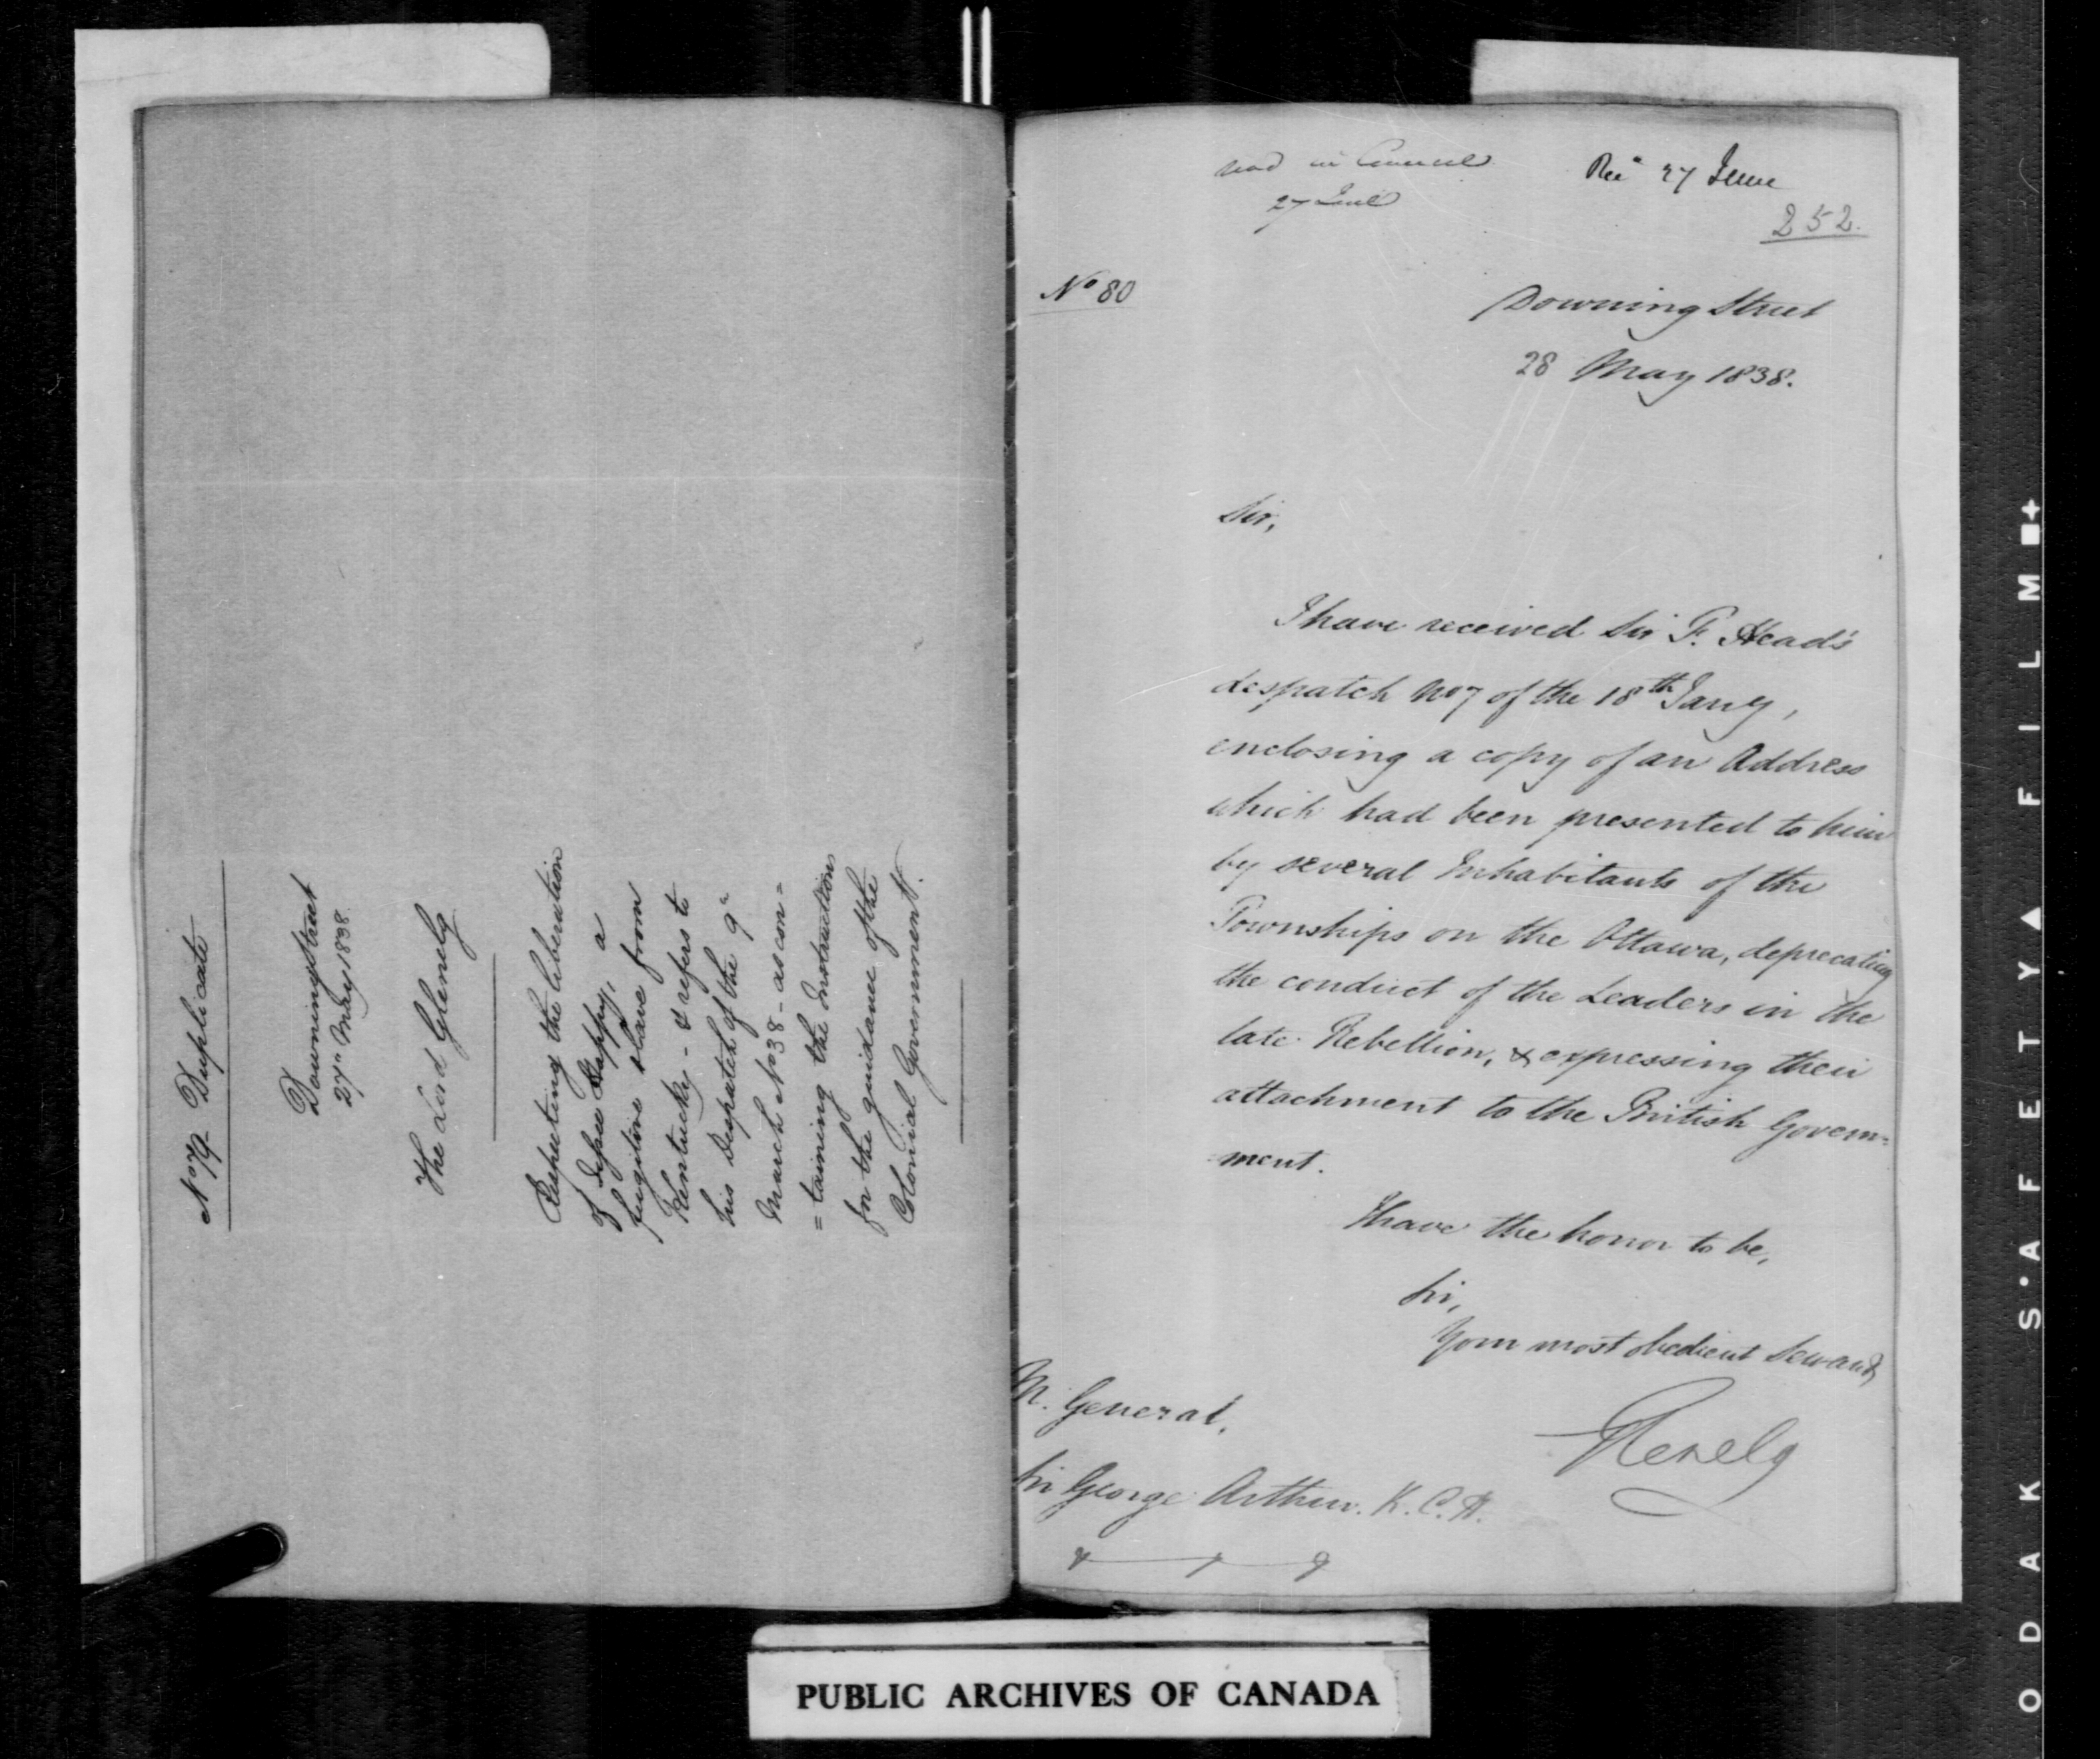 No 79 Duplicate
Downing Street
27th May 1838.
The Lord Glenelg
Respecting the liberation
of Jesse Happy, a
fugitive slave from
Kentucky - & refers to
his Despatch of the 9th
March No 38 - as con=
=taining the Instructions
for the guidance of the
Colonial Government.
read in Council
27 June
Recd 27 June
252.
No 80
Downing Street
28 May 1838.
Sir,
I have received Sir F. Head's
despatch No 7 of the 18th Jany,
enclosing a copy of an Address
which had been presented to him
by several Inhabitants of the
Townships on the Ottawa, deprecating
the conduct of the Leaders in the
late Rebellion, & expressing their
attachment to the British Govern=
=ment.
I have the honor to be,
Sir,
Your most obedient Servant,
Glenelg
M. General,
Sir George Arthur. K.C.H.
PUBLIC ARCHIVES OF CANADA
KODAK S'AFETY▲FILM■+